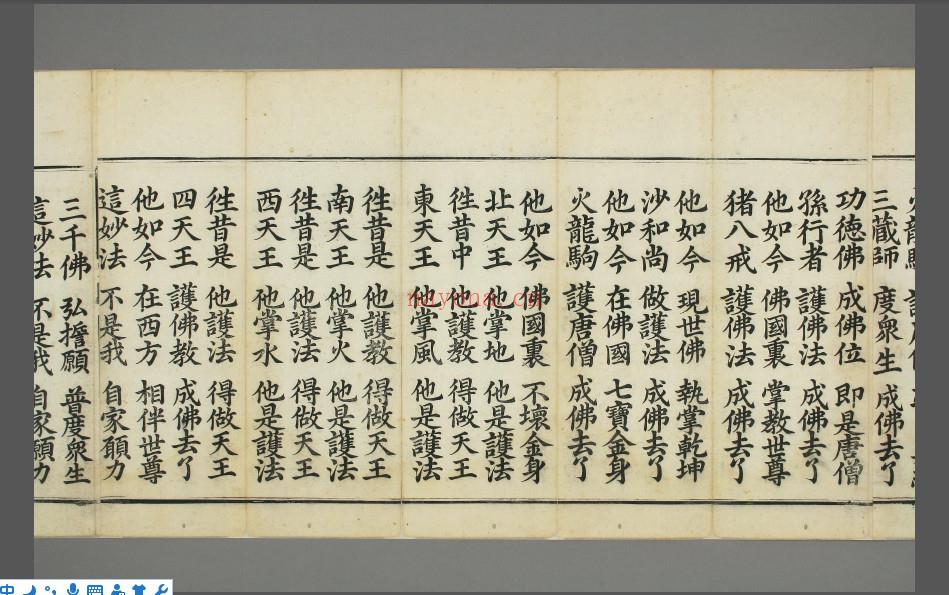 三藏師 度衆生 成佛去了
功德佛 成佛位 即是唐僧
孫行者 護佛法 成佛去了
他如今 佛國裏 掌教世尊
猪八戒 護佛法 成佛去了
他如今 現世佛 執掌乾坤
沙和尚 做護法 成佛去了
他如今 在佛國 七寶金身
火龍駒 護唐僧 成佛去了
他如今 佛國裏 不壞金身
北天王 他掌地 他是護法
徃昔中 他護教 得做天王
東天王 他掌風 他是護法
徃昔是 他護教 得做天王
南天王 他掌火 他是護法
徃昔是 他護法 得做天王
西天王 他掌水 他是護法
徃昔是 他護法 得做天王
四天王 護佛教 成佛去了
他如今 在西方 相伴世尊
這妙法 不是我 自家願力
三千佛 弘誓願 普度衆生
妙法 不是我 自家願力
nayona.cn
中